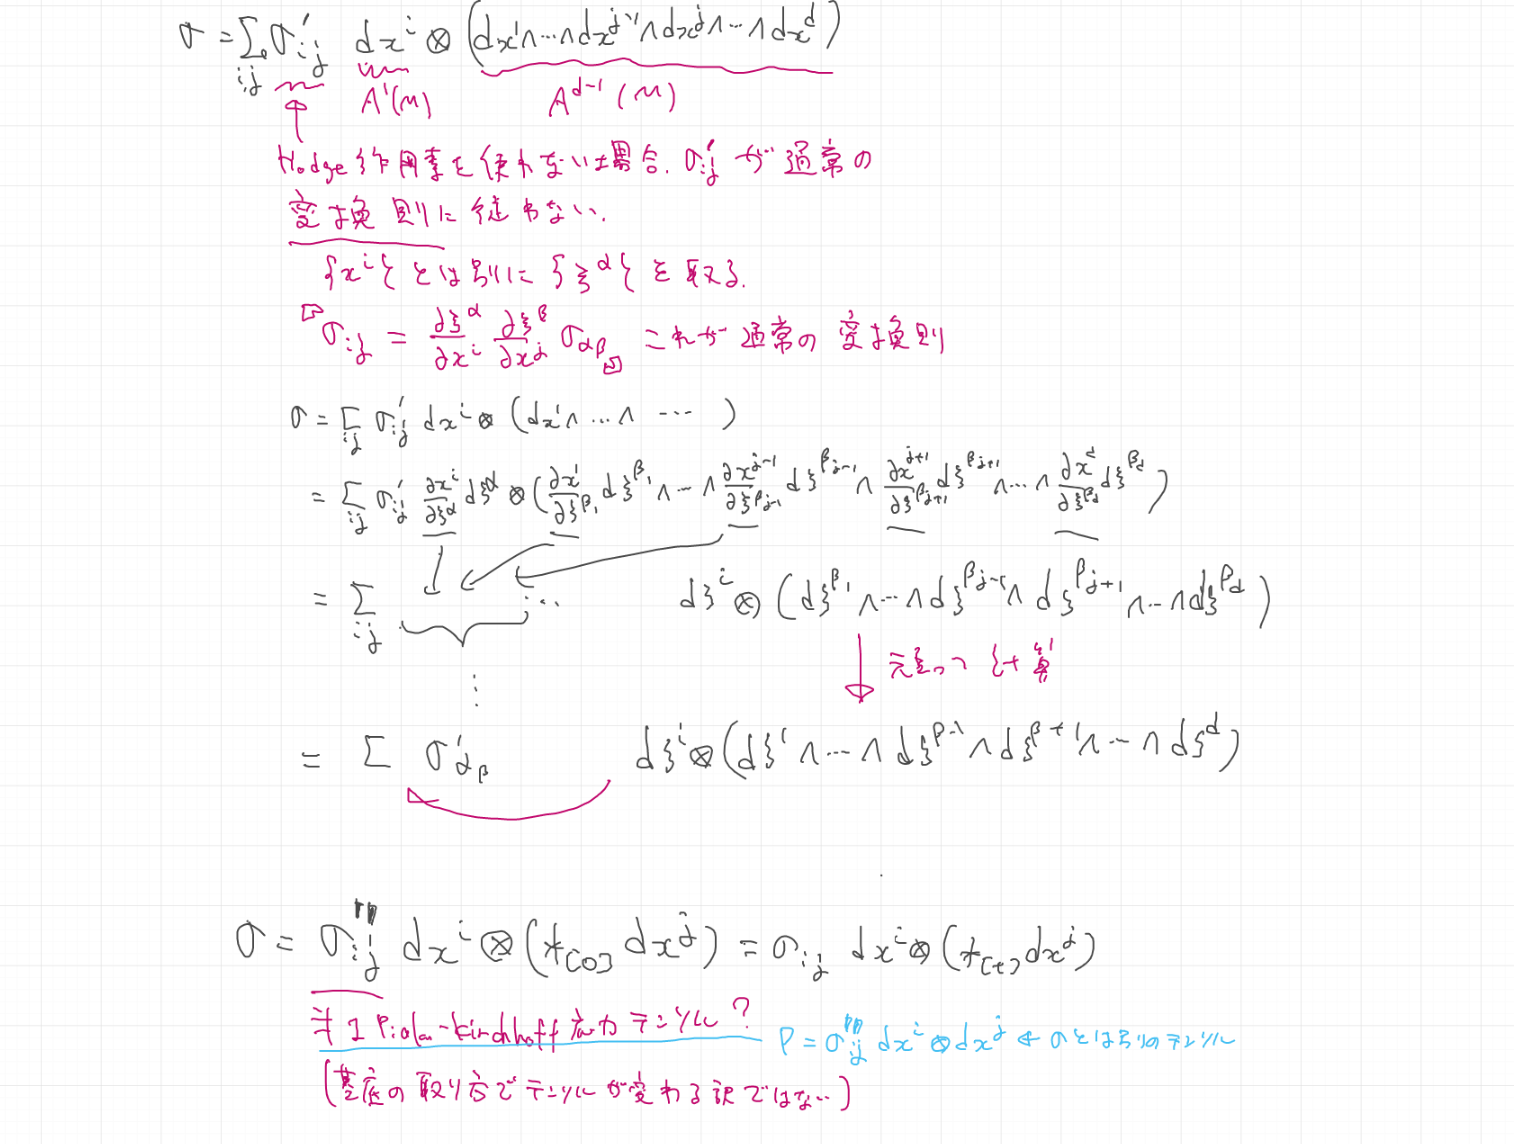 σ = Σ_{ij} σ'_{ij} dx^i ⊗ (dx^1∧…∧dx^{j-1}∧dx^{j}∧…∧dx^d)
A^1(M) A^{d-1}(M)
Hodge作用素を使わない場合、σ'_{ij} が通常の
変換則に従わない.
{x^i} とは別に {ξ^α} を取る.
「σ_{ij} = ∂ξ^α/∂x^i ∂ξ^β/∂x^j σ_{αβ}」 これが通常の変換則
σ = Σ_{ij} σ'_{ij} dx^i ⊗ (dx^1∧…∧ … )
= Σ_{ij} σ'_{ij} ∂x^i/∂ξ^α dξ^α ⊗ (∂x^1/∂ξ^{β_1} dξ^{β_1}∧…∧∂x^{j-1}/∂ξ^{β_{j-1}} dξ^{β_{j-1}}∧∂x^{j+1}/∂ξ^{β_{j+1}} dξ^{β_{j+1}}∧…∧∂x^d/∂ξ^{β_d} dξ^{β_d})
= Σ_{ij} … dξ^i ⊗ (dξ^{β_1}∧…∧dξ^{β_{j-1}}∧dξ^{β_{j+1}}∧…∧dξ^{β_d})
計算
⋮
= Σ σ'_{αβ} dξ^i ⊗ (dξ^1∧…∧dξ^{β-1}∧dξ^{β+1}∧…∧dξ^d)
σ = σ'''_{ij} dx^i ⊗ (*_{[0]} dx^j) = σ_{ij} dx^i ⊗ (*_{[t]} dx^j)
第1 Piola-Kirchhoff 応力テンソル?
P = σ'''_{ij} dx^i ⊗ dx^j ← σとは別のテンソル
(基底の取り方でテンソルが変わる訳ではない…)